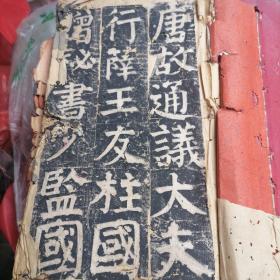 唐故通議大夫
行薛王友柱國
贈秘書少監國